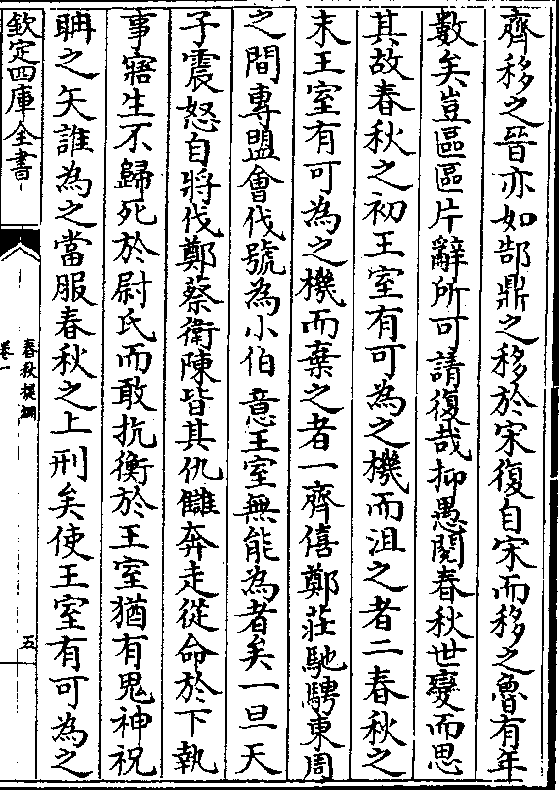 齊移之晉亦如郜鼎之移於宋復自宋而移之魯有年
數矣豈區區片辭所可請復哉抑愚閱春秋世變而思
其故春秋之初王室有可為之機而沮之者二春秋之
末王室有可為之機而棄之者一齊僖鄭莊馳騁東周
之間專盟會伐號為小伯意王室無能為者矣一旦天
子震怒自將伐鄭蔡衛陳皆其仇讎奔走從命於下執
事寤生不歸死於尉氏而敢抗衡於王室猶有鬼神祝
聃之矢誰為之當服春秋之上刑矣使王室有可為之
欽定四庫全書
春秋提綱
卷一
五